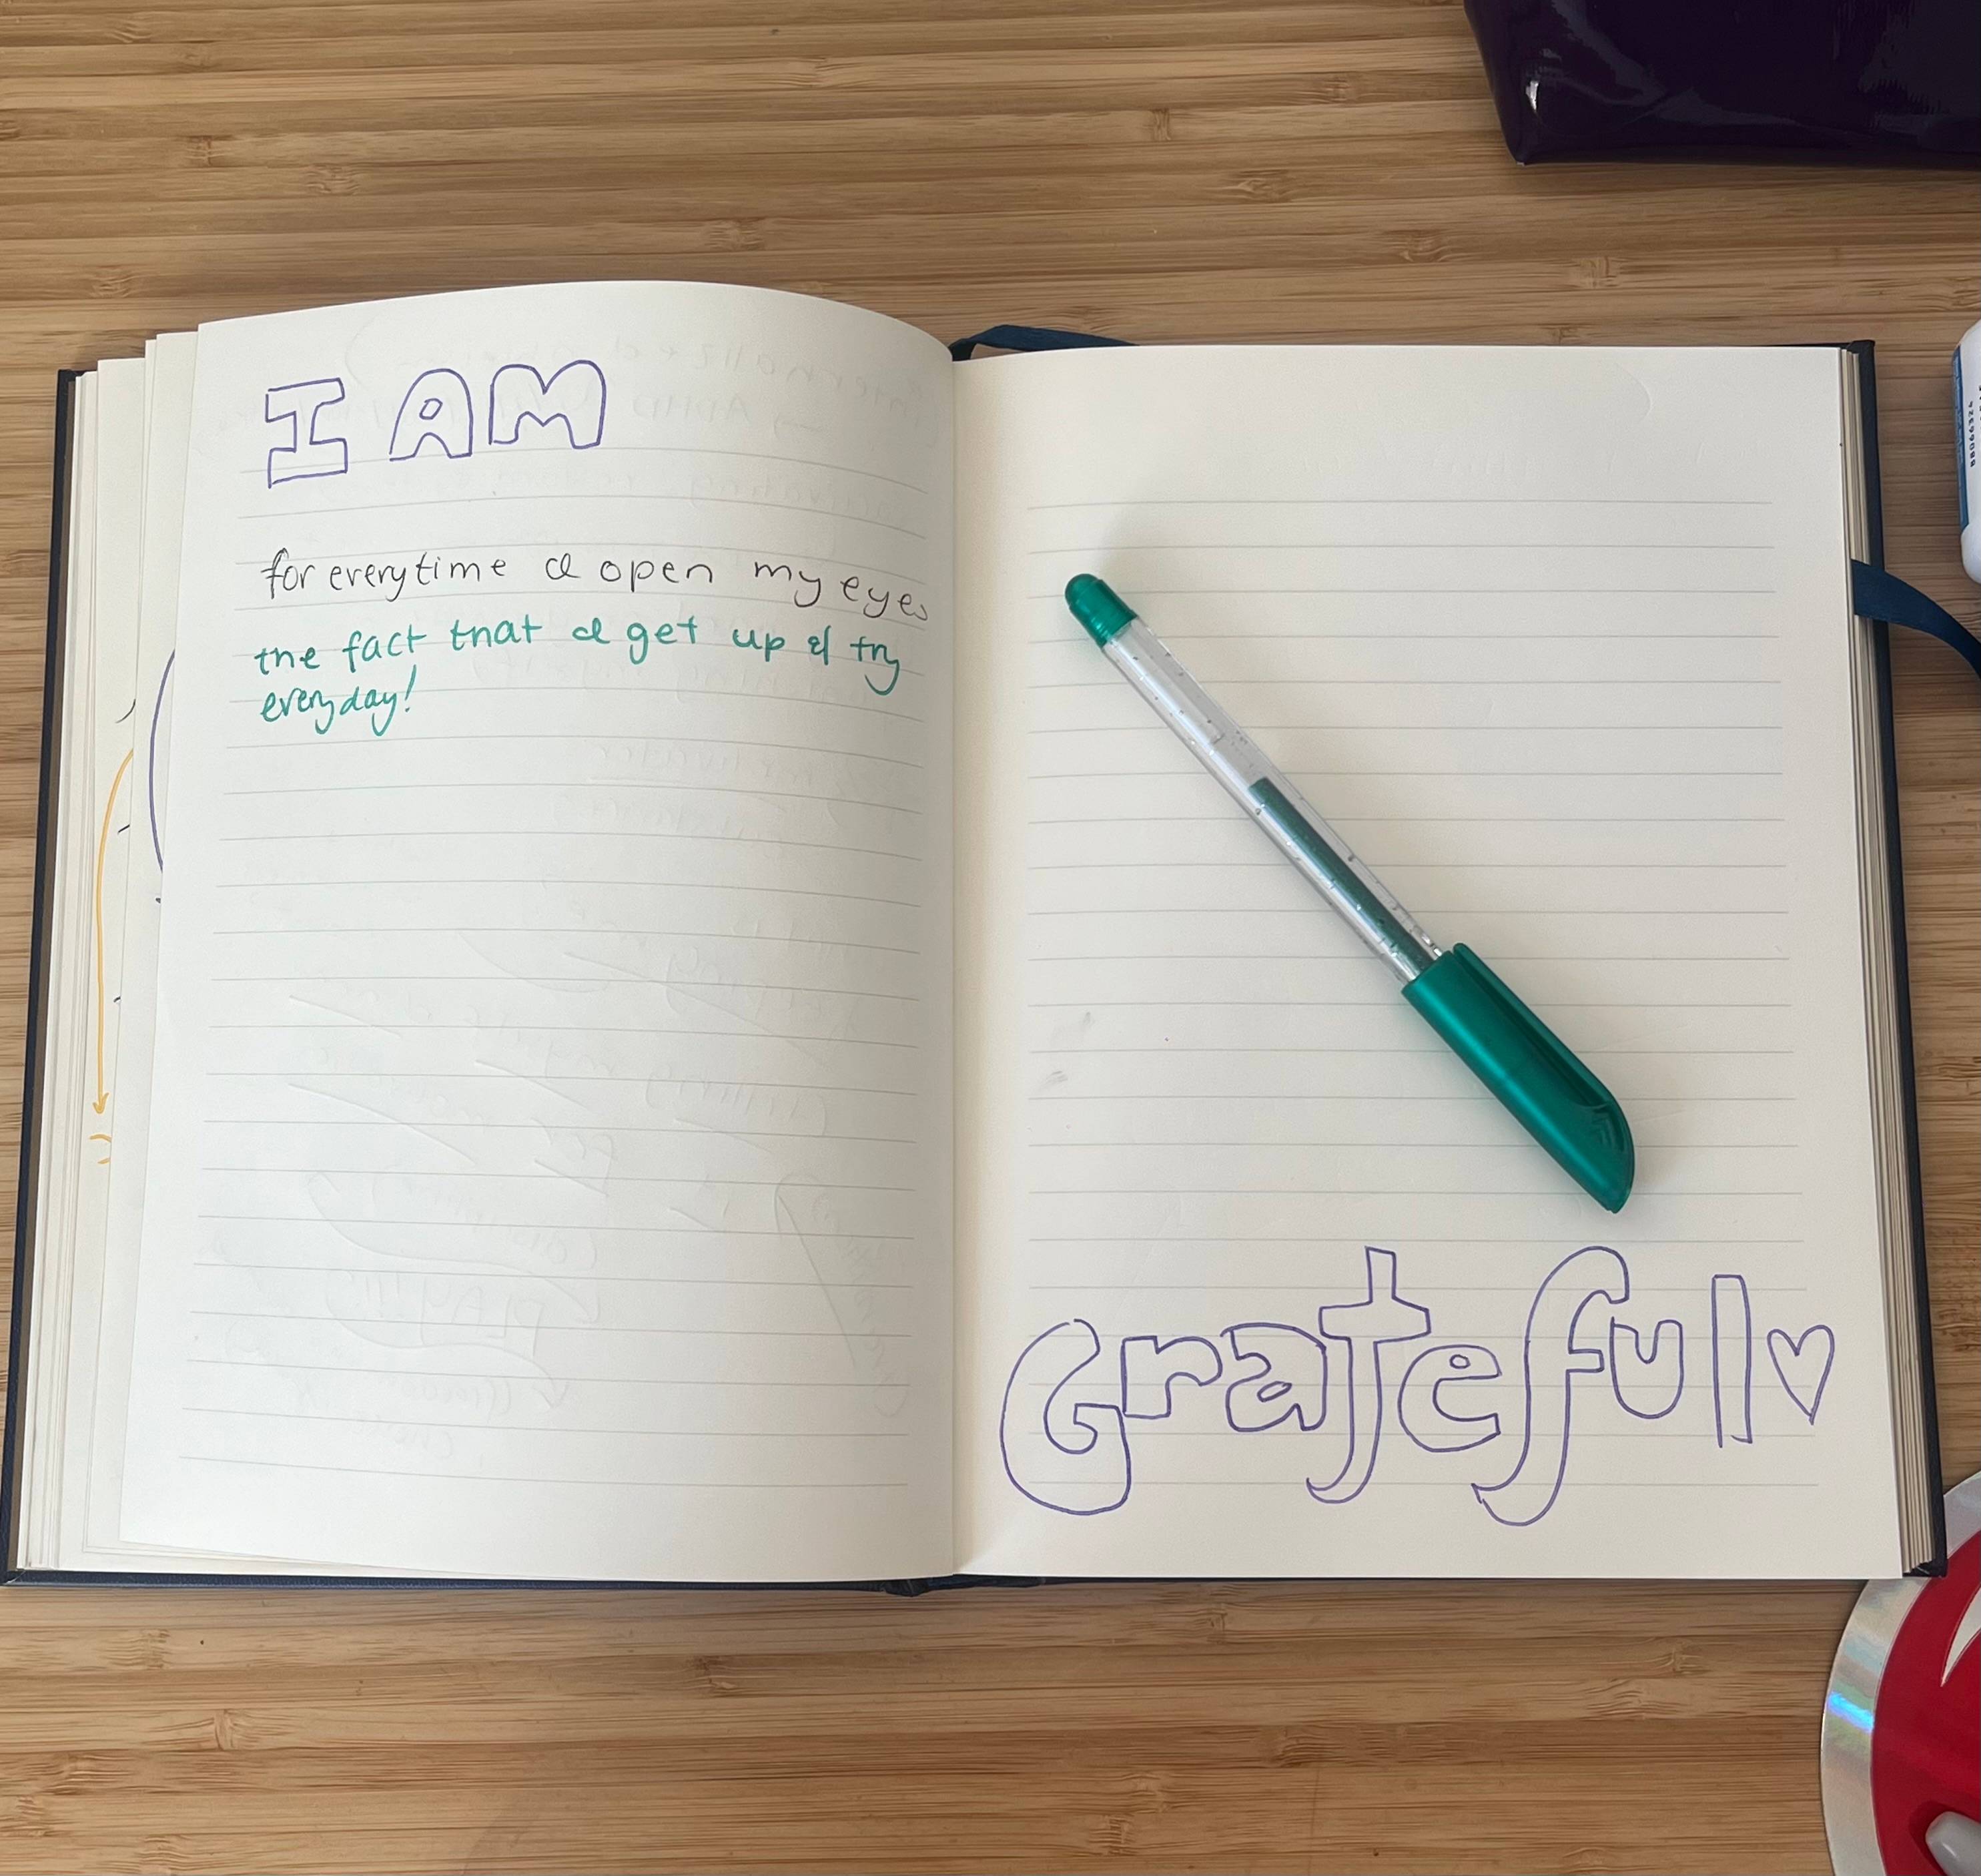 I AM
for everytime I open my eyes
the fact that I get up & try
everyday!
Grateful♡